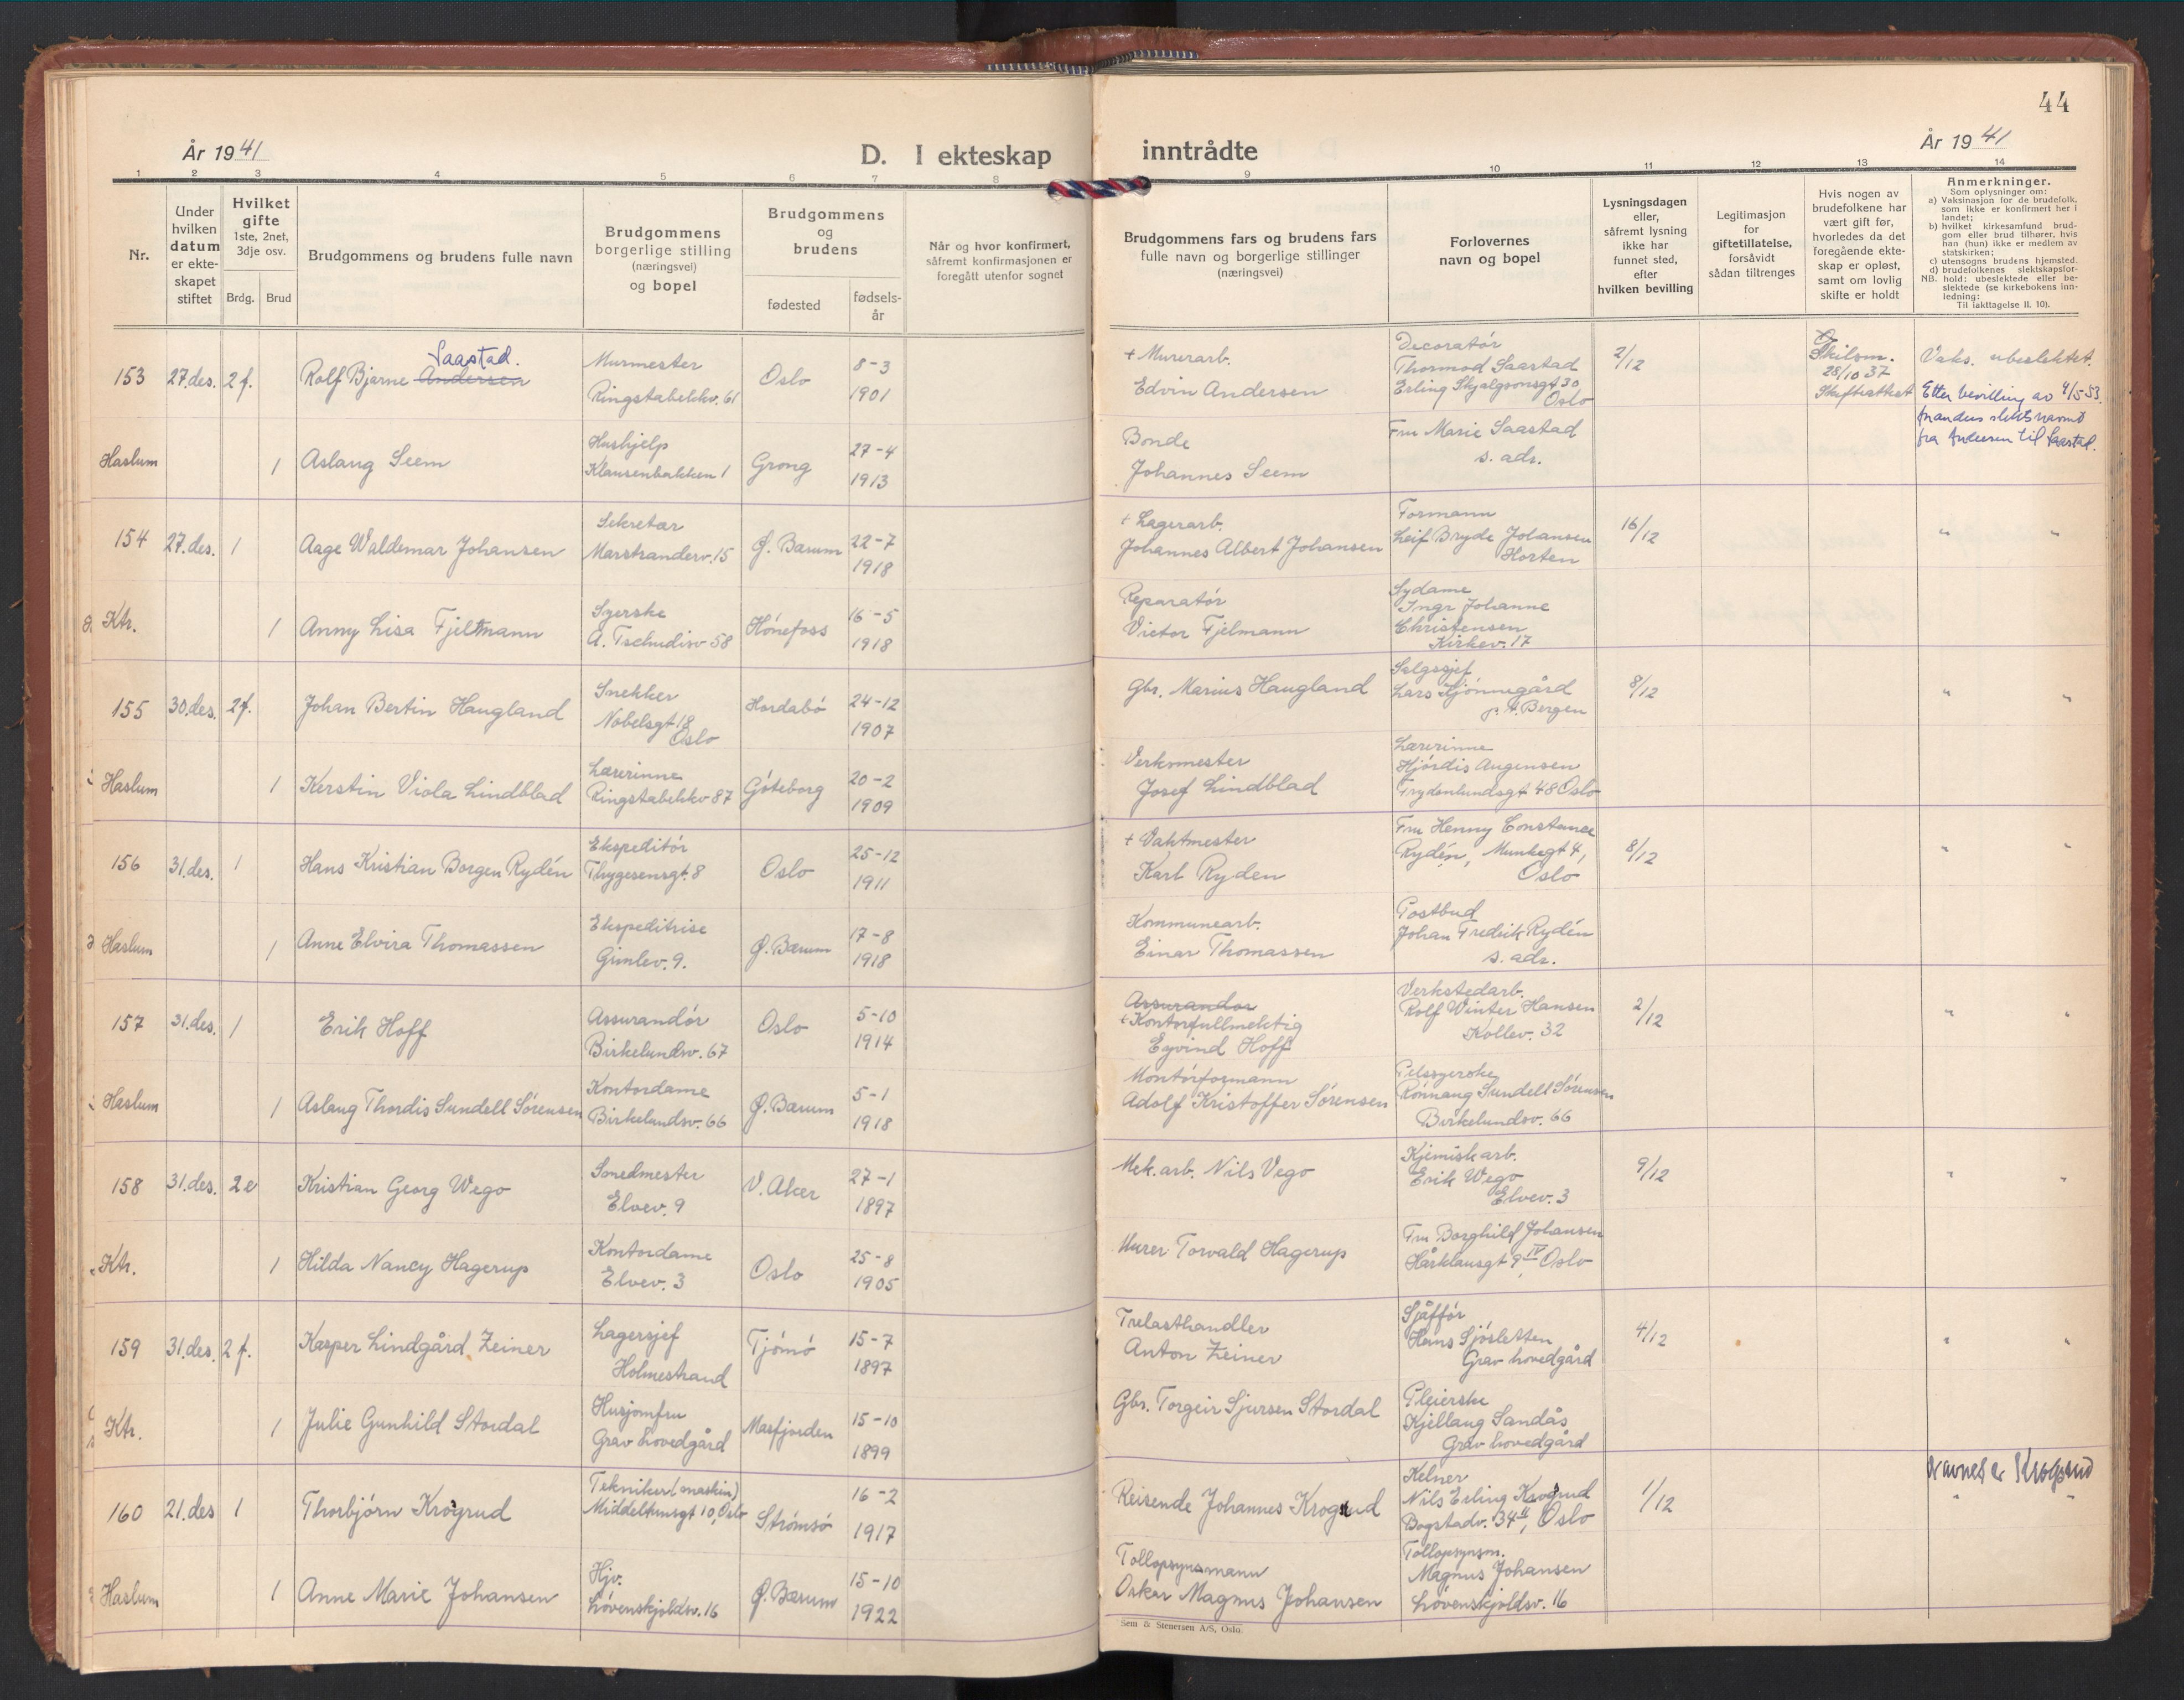 44
År 1941
D. I ekteskap inntrådte
År 1941
1 2 3 4 5 6 7 8 9 10 11 12 13 14
Nr.
Under hvilken datum er ekte-skapet stiftet
Hvilket gifte 1ste, 2net, 3dje osv.
Brdg. Brud
Brudgommens og brudens fulle navn
Brudgommens borgerlige stilling (næringsvei) og bopel
Brudgommens og brudens
fødested
fødsels-år
Når og hvor konfirmert, såfremt konfirmasjonen er foregått utenfor sognet
Brudgommens fars og brudens fars fulle navn og borgerlige stillinger (næringsvei)
Forlovernes navn og bopel
Lysningsdagen eller, såfremt lysning ikke har funnet sted, efter hvilken bevilling
Legitimasjon for giftetillatelse, forsåvidt sådan tiltrenges
Hvis nogen av brudefolkene har vært gift før, hvorledes da det foregående ekte-skap er opløst, samt om lovlig skifte er holdt
Anmerkninger.
Som oplysninger om:
a) Vaksinasjon for de brudefolk, som ikke er konfirmert her i landet;
b) hvilket kirkesamfund brud-gom eller brud tilhører, hvis han (hun) ikke er medlem av statskirken;
c) utensogns brudens hjemsted.
d) brudefolkenes slektskapsfor-hold: ubeslektede eller be-slektede (se kirkebokens inn-ledning:
NB.
Til iakttagelse II. 10).
153 27.des. 2f. Rolf Bjarne Andersen Saastad. Murmester Ringstabekkv. 61 Oslo 8-3 1901
+ Murerarb. Edvin Andersen
Decoratør Thormod Saastad Erling Skjalgsonsgt 30, Oslo
2/12
Skilsm. 28/10 37 Skifteattest
Vaks. ubeslektet.
Etter bevilling av 4/5-53 forandres slektsnavnet fra Andersen til Saastad.
Haslum 1 Aslaug Seem Hushjelp Klausenbakken 1 Grong 27-4 1913
Bonde Johannes Seem
Fru Marie Saastad s. adr.
154 27.des. 1 Aage Waldemar Johansen Sekretær Marstranderv. 15 Ø. Bærum 22-7 1918
+ Lagerarb. Johannes Albert Johansen
Formann Leif Bryde Johansen Horten
16/12 " "
Ktr. 1 Anny Lisa Fjeltmann Syerske A. Tschudisv 58 Hönefoss 16-5 1918
Reparatör Victor Fjelmann
Sydame Ingr Johanne Christensen Kirkev. 17
155 30.des. 2f. Johan Bertin Haugland Snekker Nobelsgt 18 Oslo Hordabö 24-12 1907
Gbr. Marius Haugland
Salgssjef Lars Kjönnegård p.t. Bergen
8/12 " "
Haslum 1 Kerstin Viola Lindblad Lærerinne Ringstabekkv 87 Göteborg 20-2 1909
Verkmester Josef Lindblad
Lærerinne Hjördis Augensen Frydenlundsgt 48 Oslo
156 31.des. 1 Hans Kristian Borgen Rydén Ekspeditör Thygesensgt. 8 Oslo 25-12 1911
+ Vaktmester Karl Ryden
Fru Henny Constance Rydén, Munkegt 4, Oslo
8/12 " "
Haslum 1 Anne Elvira Thomassen Ekspeditrise Gimlev. 9. Ø. Bærum 17-8 1918
Kommunearb. Einar Thomassen
Postbud Johan Fredrik Rydén s. adr.
157 31.des. 1 Erik Hoff Assurandör Birkelundsv. 67 Oslo 5-10 1914
Assurandör + Kontorfullmektig Eyvind Hoff
Verkstedarb. Rolf Winter Hansen Kollev. 32
2/12 " "
Haslum 1 Aslaug Thordis Sundell Sörensen Kontordame Birkelundsv. 66 Ø. Bærum 5-1 1918
Montörformann Adolf Kristoffer Sörensen
Pelssyerske Rönnaug Sundell Sörensen Birkelundsv. 66
158 31.des. 2e Kristian Georg Wego Smedmester Elvev. 9 V. Aker 27-1 1897
Mek. arb. Nils Vego
Kjemisk arb. Erik Wego Elvev. 3
9/12 " "
Ktr. 1 Hilda Nancy Hagerup Kontordame Elvev. 3 Oslo 25-8 1905
Murer Torvald Hagerup
Fru Borghild Johansen Hårklausgt 9 IV Oslo
159 31.des. 2f. Kasper Lindgård Zeiner Lagersjef Holmestrand Tjömö 15-7 1897
Trelasthandler Anton Zeiner
Sjåfför Hans Sjösletten Grav hovedgård
4/12 " "
Ktr. 1 Julie Gunhild Stordal Husjomfru Grav hovedgård Masfjorden 15-10 1899
Gbr. Torgeir Sjursen Stordal
Pleierske Kjellaug Sandås Grav hovedgård
160 21.des 1 Thorbjörn Krogrud Tekniker (maskin) Middelthunsgt 10, Oslo Strömsö 16-2 1917
Reisende Johannes Krogsrud
Kelner Nils Erling Krogrud Bogstadv. 34 II, Oslo
1/12
Navnet er Krogsrud
" "
Haslum 1 Anne Marie Johansen Hjv. Lövenskjoldsv. 16 Ø. Bærum 15-10 1922
Tollopsynsmann Oskar Magnus Johansen
Tollopsynsm. Magnus Johansen Lövenskjoldsv. 16
Sem & Stenersen A/S, Oslo.